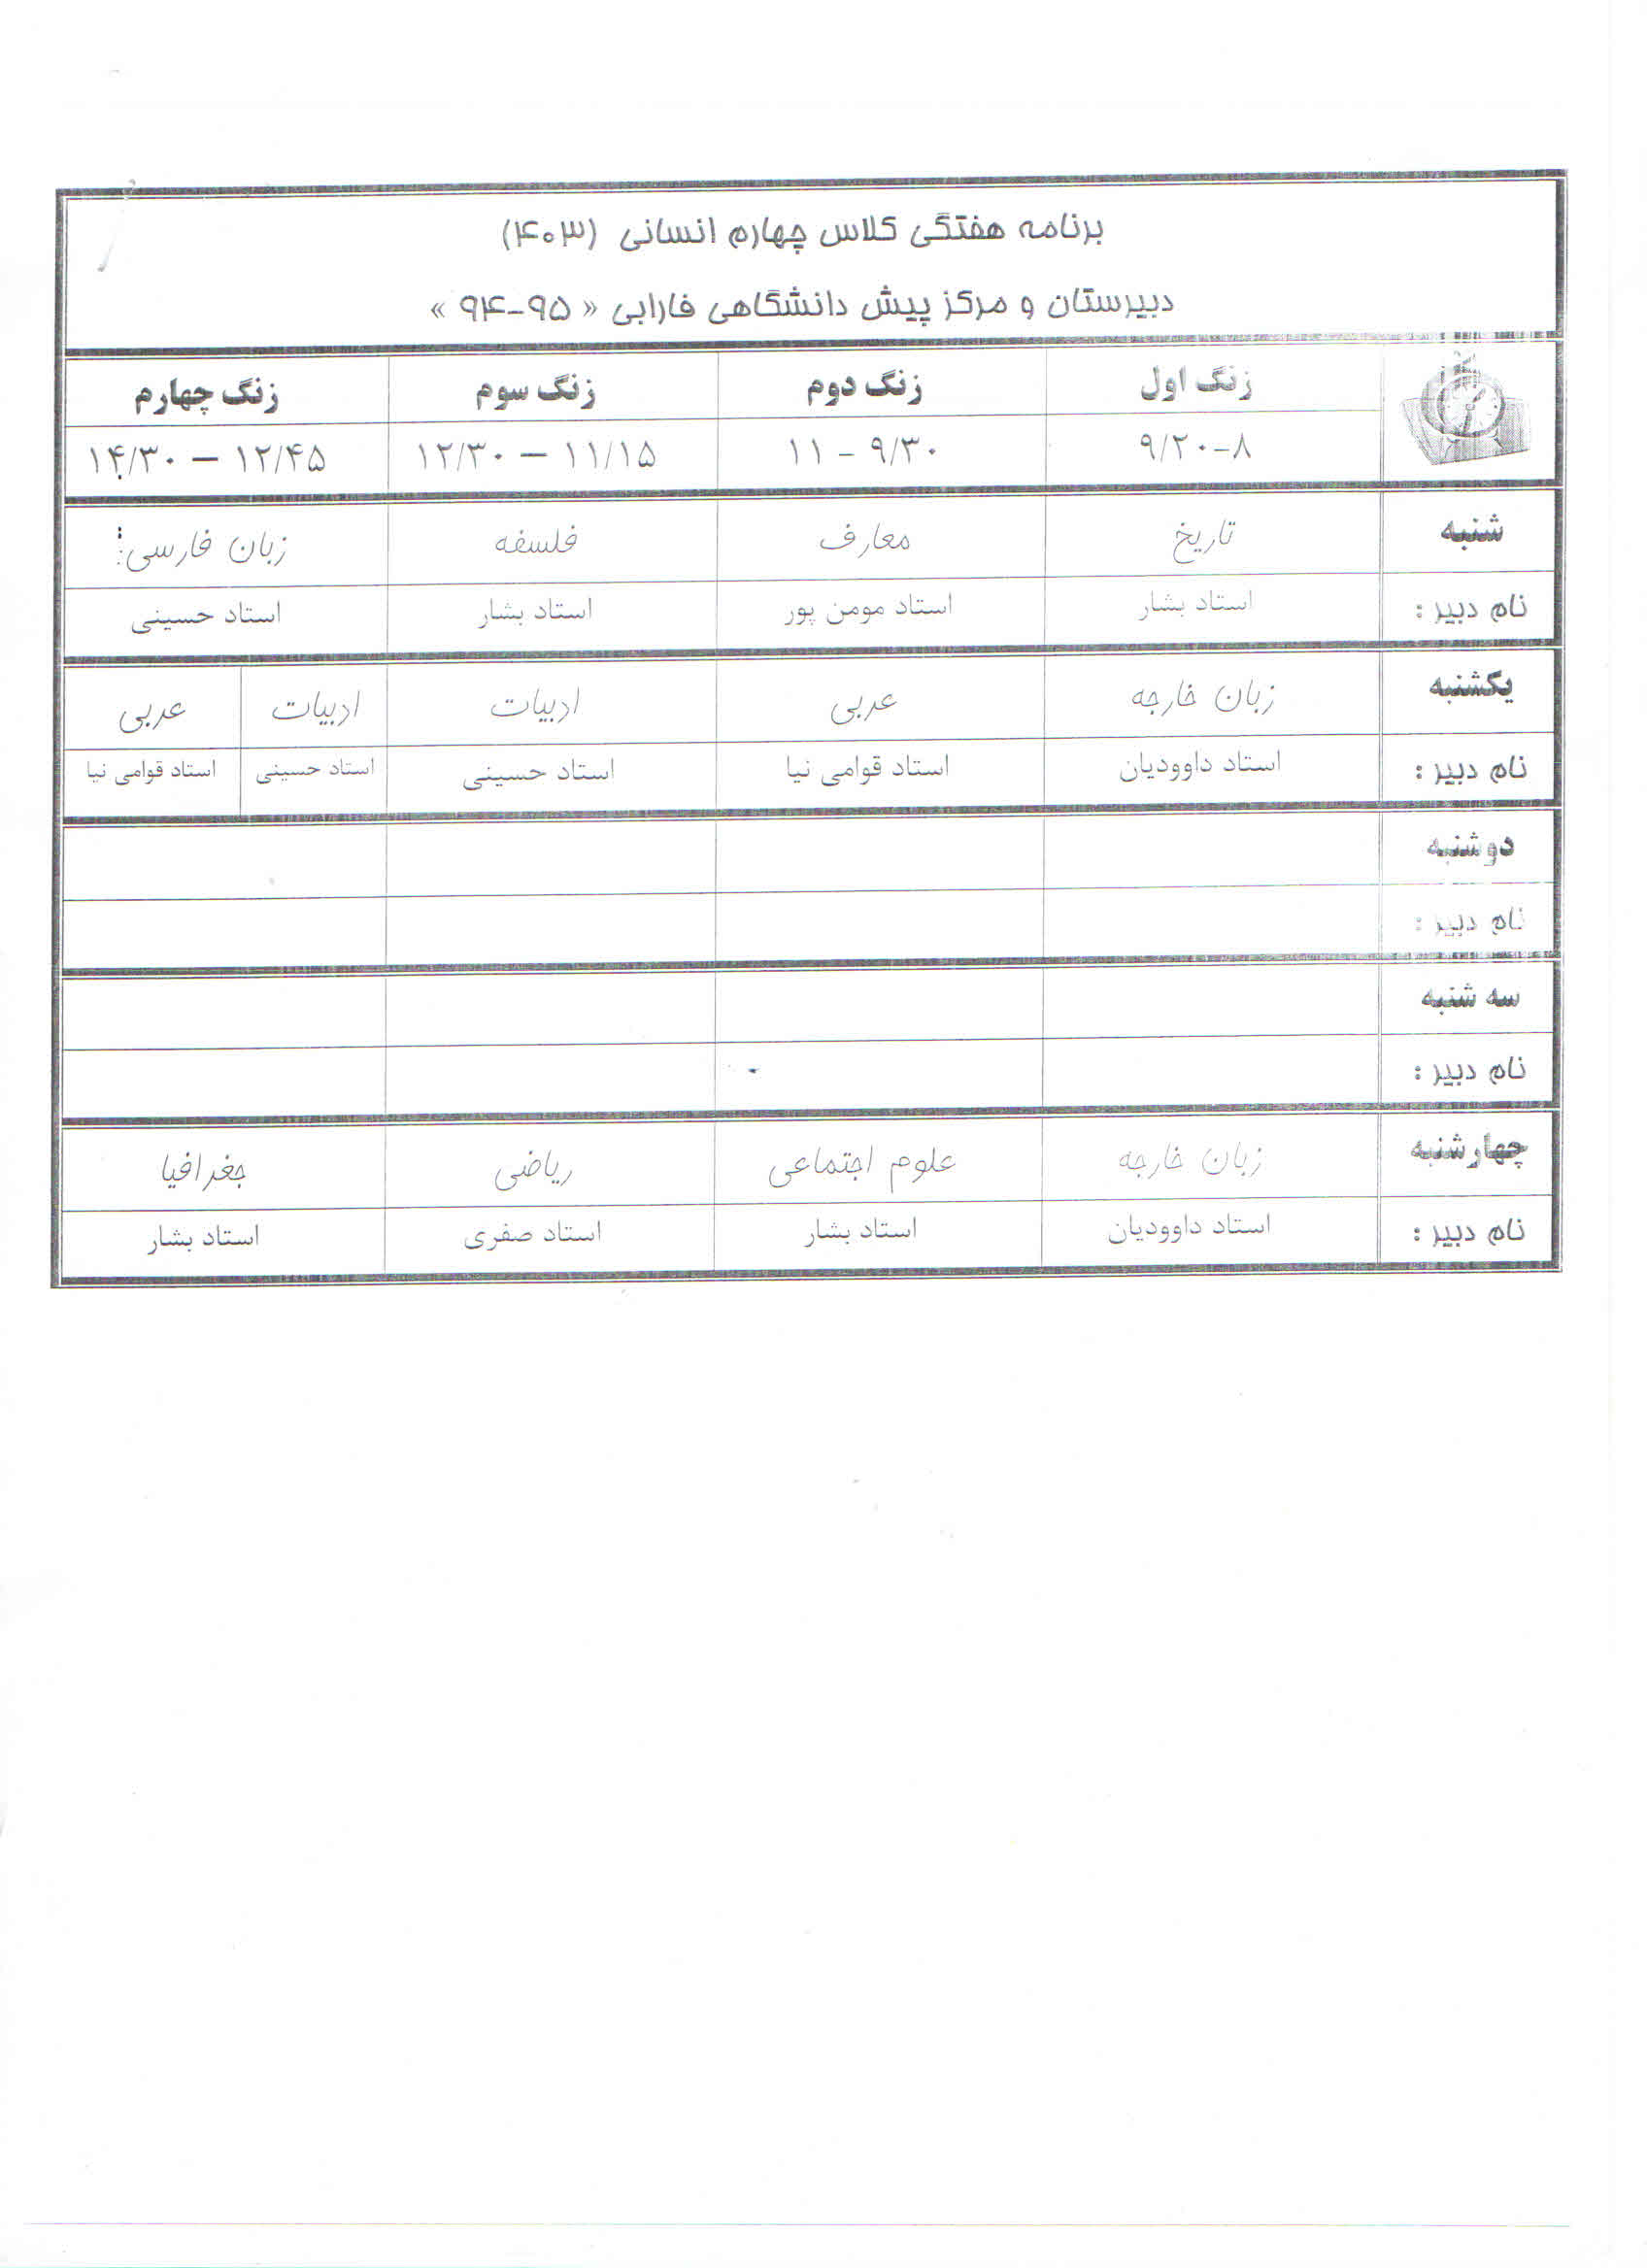 برنامه هفتگی کلاس چهارم انسانی (۴۰۳)
دبیرستان و مرکز پیش دانشگاهی فارابی « ۹۵-۹۴ »
زنگ اول زنگ دوم زنگ سوم زنگ چهارم
۸-۹/۲۰ ۹/۳۰ - ۱۱ ۱۱/۱۵ – ۱۲/۳۰ ۱۲/۴۵ – ۱۴/۳۰
شنبه تاریخ معارف فلسفه زبان فارسی
نام دبیر : استاد بشار استاد مومن پور استاد بشار استاد حسینی
یکشنبه زبان خارجه عربی ادبیات ادبیات عربی
نام دبیر : استاد داوودیان استاد قوامی نیا استاد حسینی استاد حسینی استاد قوامی نیا
دوشنبه
نام دبیر :
سه شنبه
نام دبیر :
چهارشنبه زبان خارجه علوم اجتماعی ریاضی جغرافیا
نام دبیر : استاد داوودیان استاد بشار استاد صفری استاد بشار